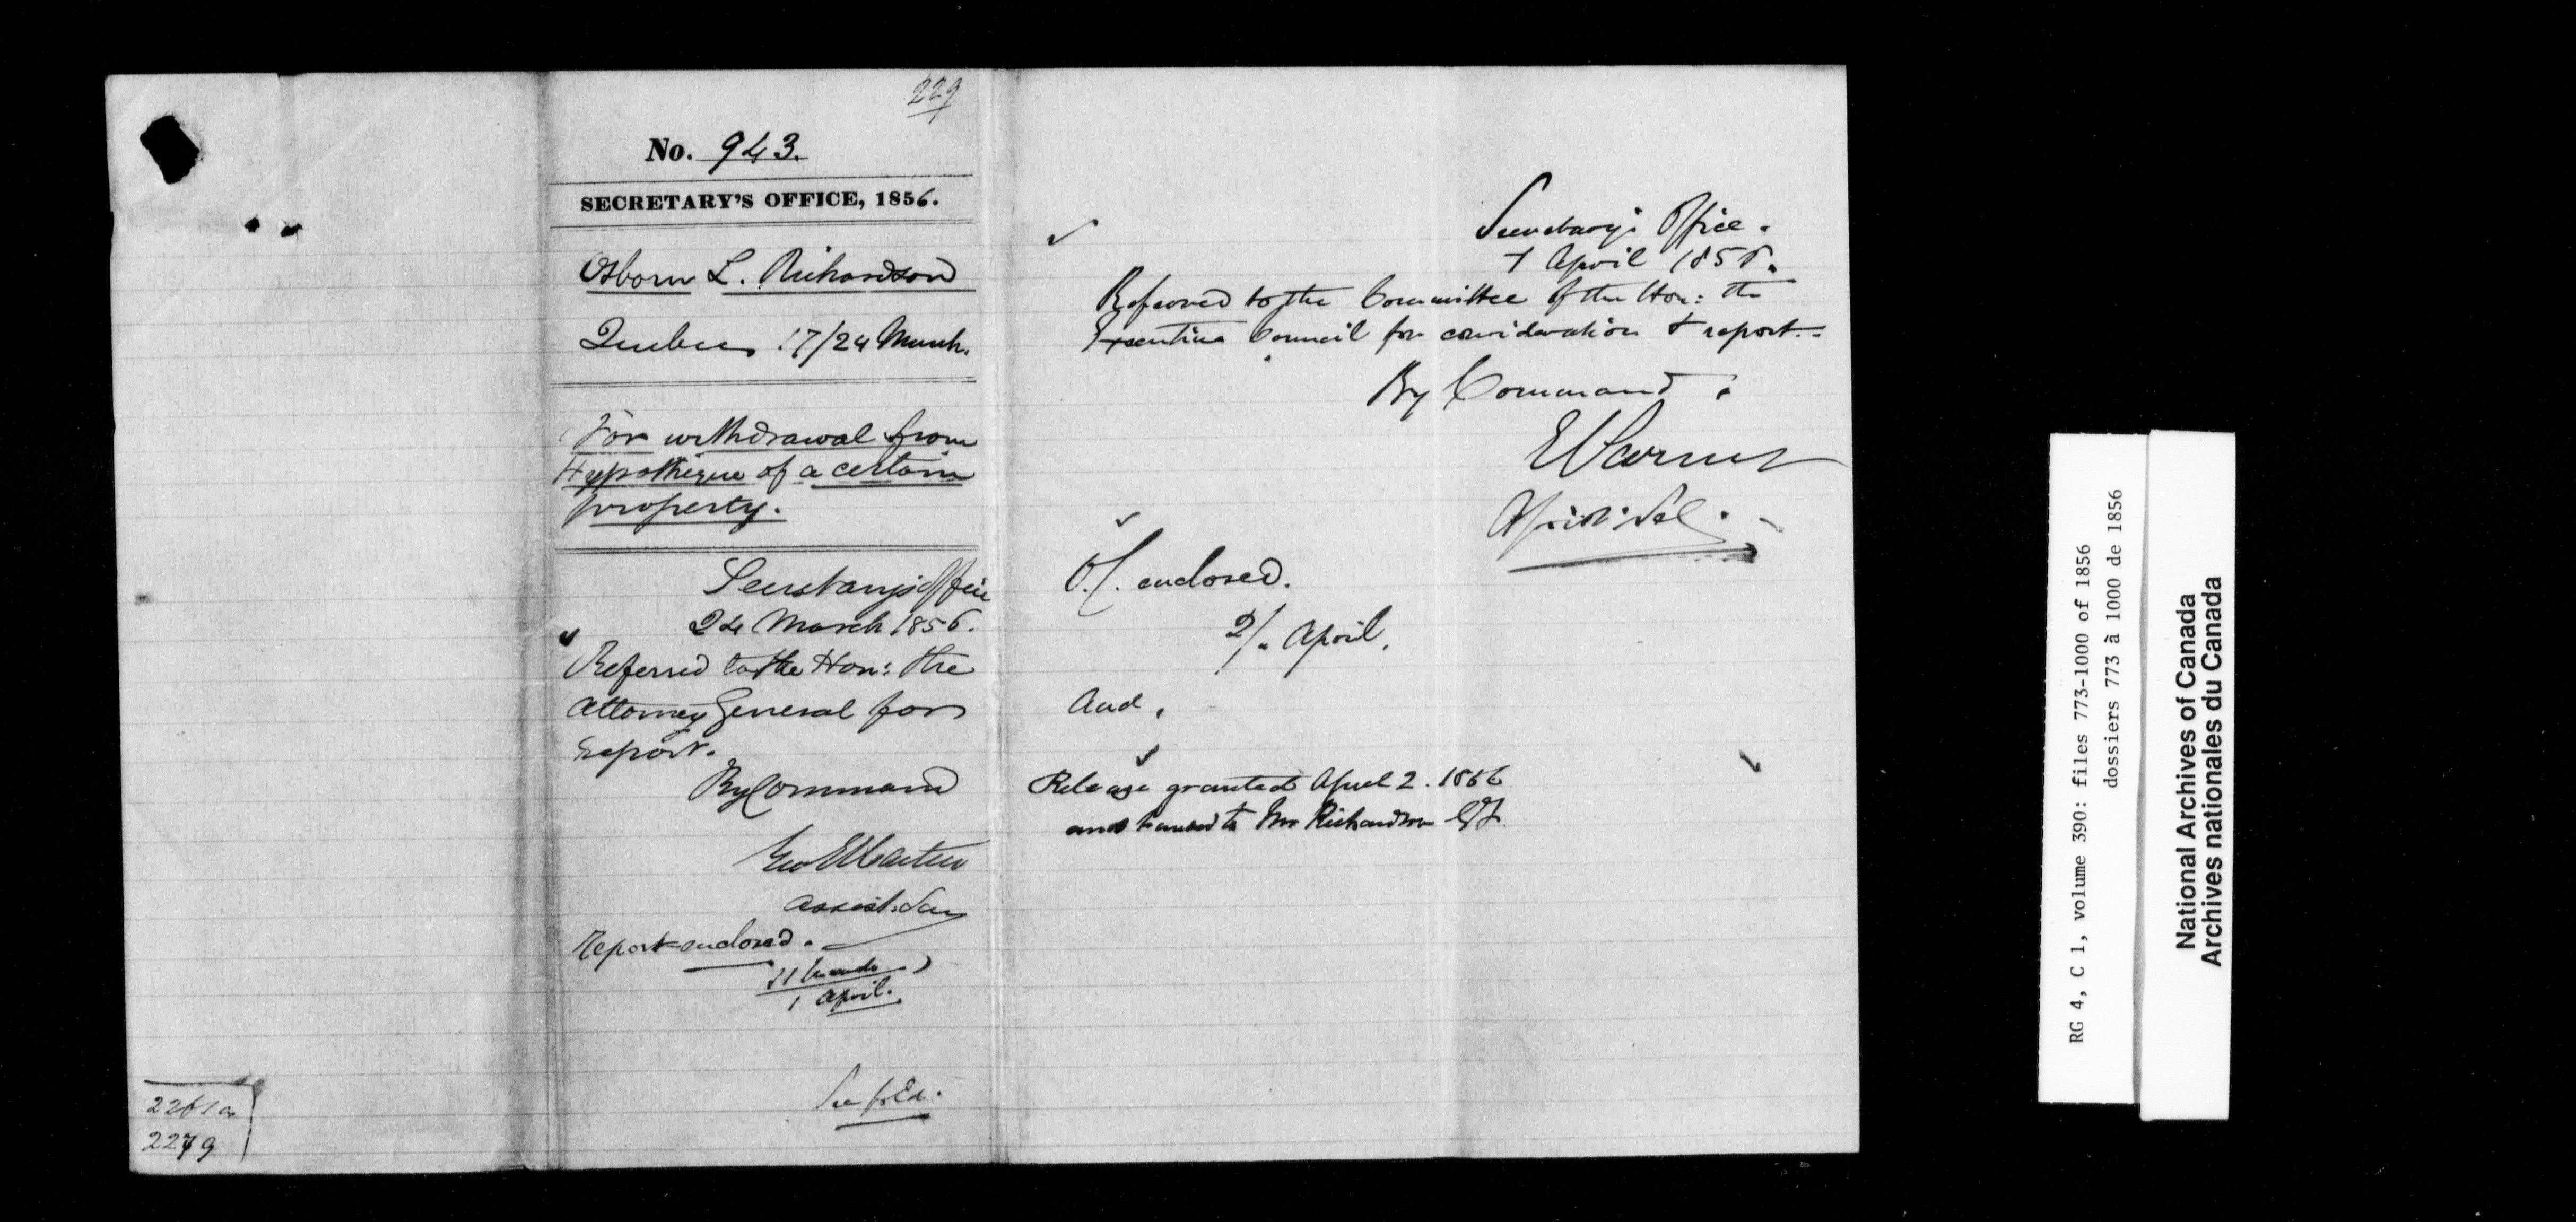 229
No. 943.
SECRETARY'S OFFICE, 1856.
Osborn L. Richardson
Quebec 17/24 March.
For withdrawal from
Hypothèque of a certain
property.
Secretary's Office
24 March 1856.
Referred to the Hon: the
Attorney General for
report.
By Command
Assist. Secy
Report enclosed.
31 March
1 April.
See fold.
2279
Secretary's Office.
1 April 1856.
Referred to the Committee of the Hon: the
Executive Council for consideration & report.
By Command
Assist. Sec.
O.C. enclosed.
2/. April.
And.
Release granted April 2. 1856
and handed to Mr Richardson
RG 4, C 1, volume 390: files 773-1000 of 1856
dossiers 773 à 1000 de 1856
National Archives of Canada
Archives nationales du Canada